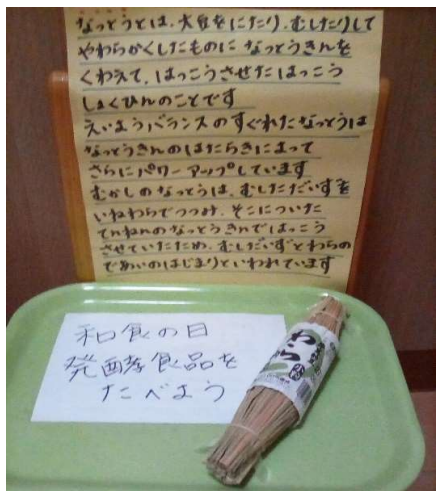 なっとうとは、大豆をにたり、むしたりして
やわらかくしたものに なっとうきんを
くわえて、はっこうさせたはっこう
しょくひんのことです
えいようバランスのすぐれたなっとうは
なっとうきんのはたらきによって
さらにパワーアップしています
むかしのなっとうは、むしただいずを
いねわらでつつみ、そこについた
てんねんのなっとうきんではっこう
させていたため、むしだいずとわらの
であいのはじまりといわれています
和食の日
発酵食品を
たべよう
わら